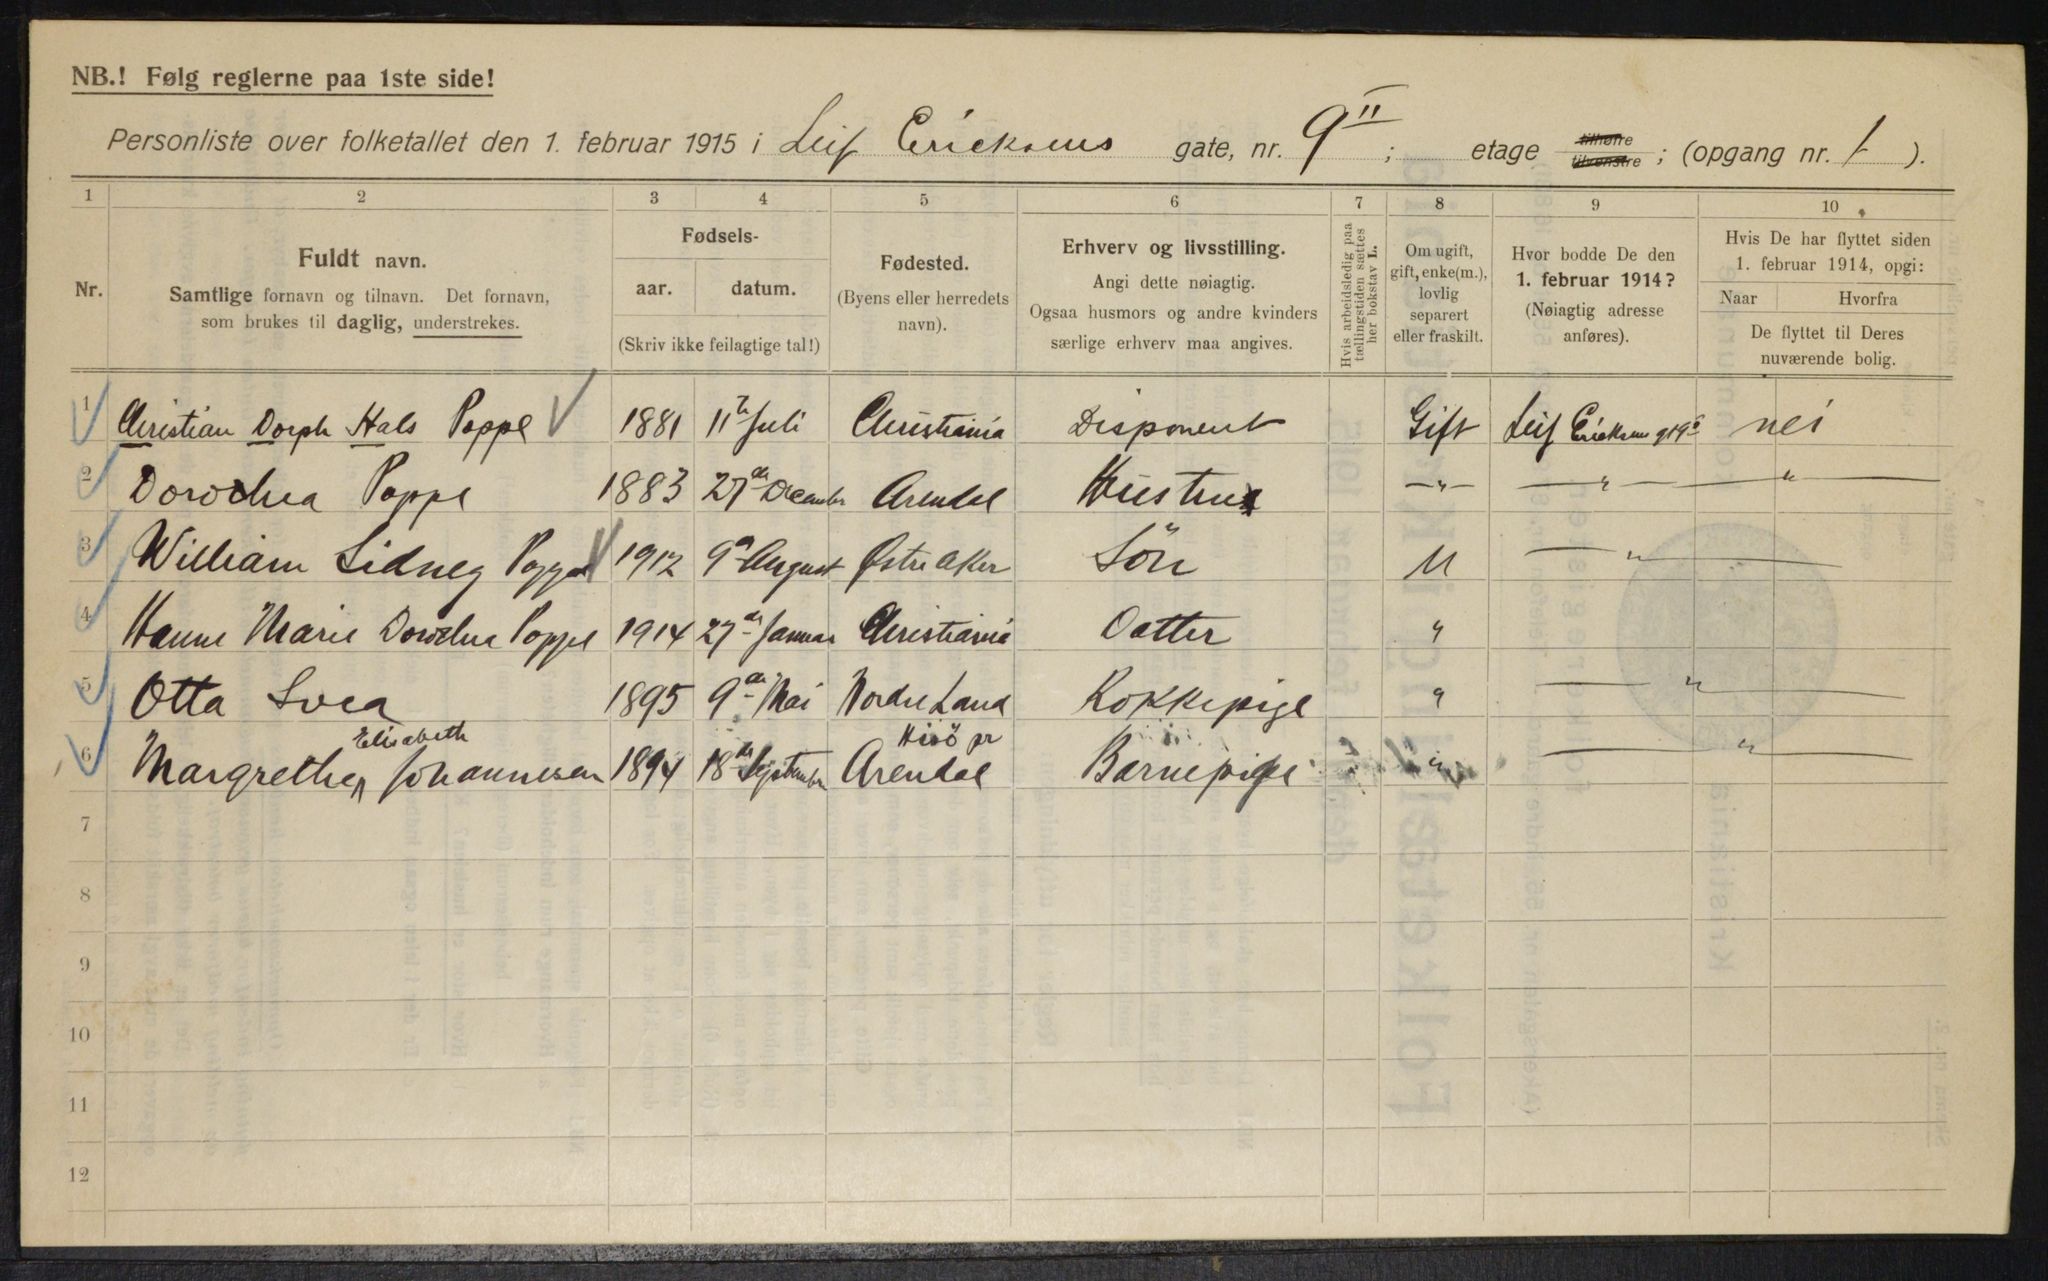 NB.! Følg reglerne paa 1ste side!
Personliste over folketallet den 1. februar 1915 i Leif Ericksens gate, nr. 9 II ; etage tilhøire tilvenstre ; (opgang nr. 1 ).
1 2 3 4 5 6 7 8 9 10
Nr.
Fuldt navn.
Samtlige fornavn og tilnavn. Det fornavn,
som brukes til daglig, understrekes.
Fødsels-
aar. datum.
(Skriv ikke feilagtige tal!)
Fødested.
(Byens eller herredets
navn).
Erhverv og livsstilling.
Angi dette nøiagtig.
Ogsaa husmors og andre kvinders
særlige erhverv maa angives.
Hvis arbeidsledig paa
tællingstiden sættes
her bokstav L.
Om ugift,
gift, enke(m.),
lovlig
separert
eller fraskilt.
Hvor bodde De den
1. februar 1914?
(Nøiagtig adresse
anføres).
Hvis De har flyttet siden
1. februar 1914, opgi:
Naar Hvorfra
De flyttet til Deres
nuværende bolig.
1 Christian Dorph Hals Poppe 1881 11te Juli Christiania Disponent Gift Leif Ericksens gt 9 nei
2 Dorothea Poppe 1883 27de December Arendal Hustru " " "
3 William Sidney Poppe 1912 9de August Østre Aker Sön U "
4 Hanne Marie Dorothea Poppe 1914 27de Januar Christiania Datter "
5 Otta Svea 1895 9de Mai Nordre Land Kokkepige " "
6 Margrethe Elisabeth Johannesen 1894 18de September Hisö pr Arendal Barnepige " "
7
8
9
10
11
12